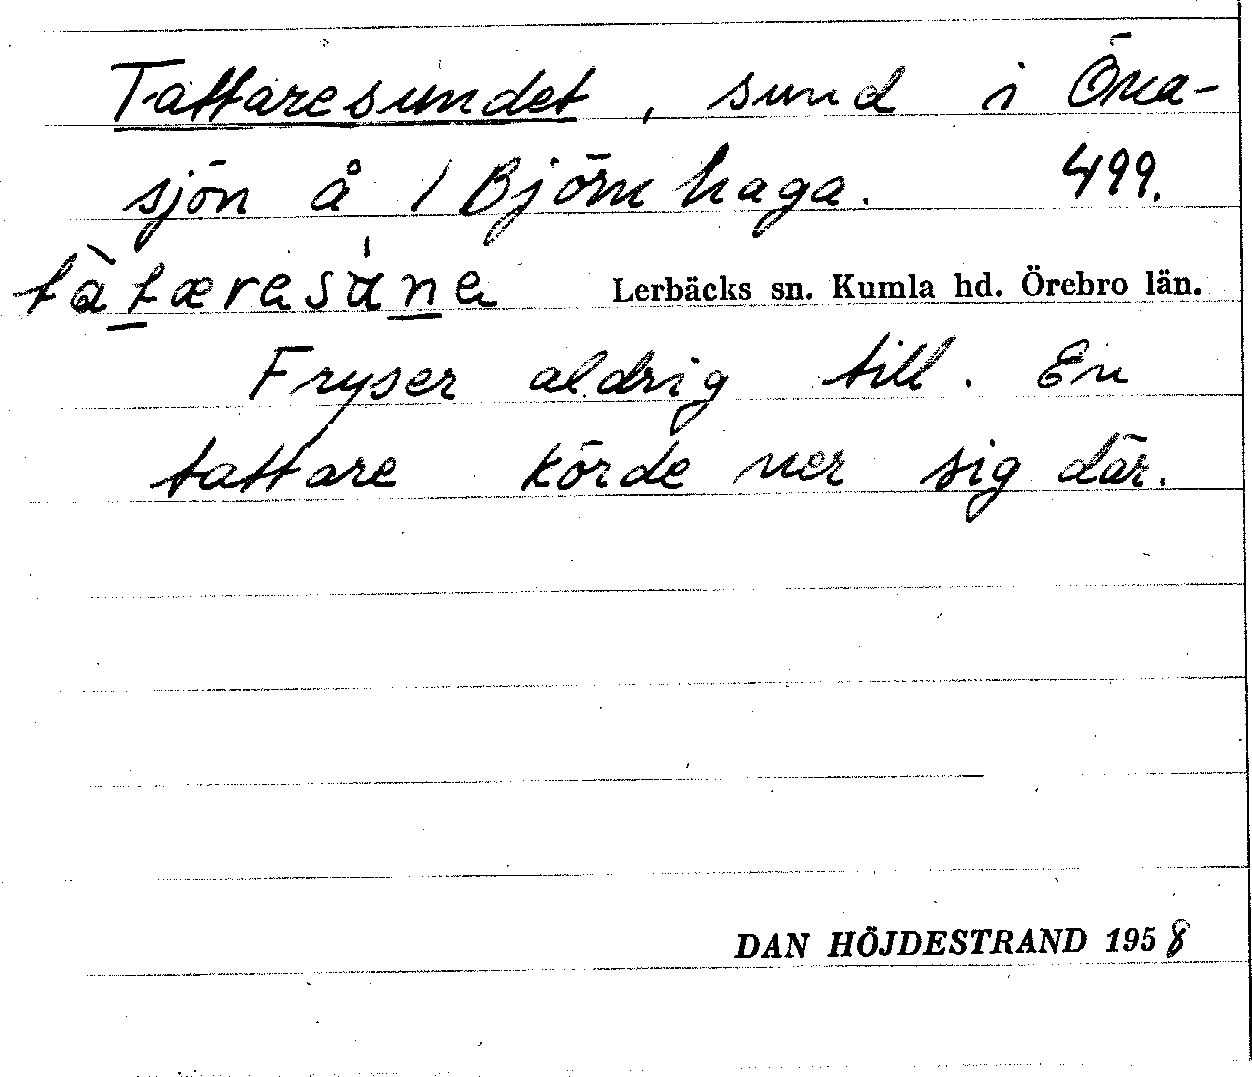 Tattaresundet, sund i Öna-
sjön å 1 Björnhaga. 499.
Lerbäcks sn. Kumla hd. Örebro län.
Fryser aldrig till. En
tattare körde ner sig där.
DAN HÖJDESTRAND 1958